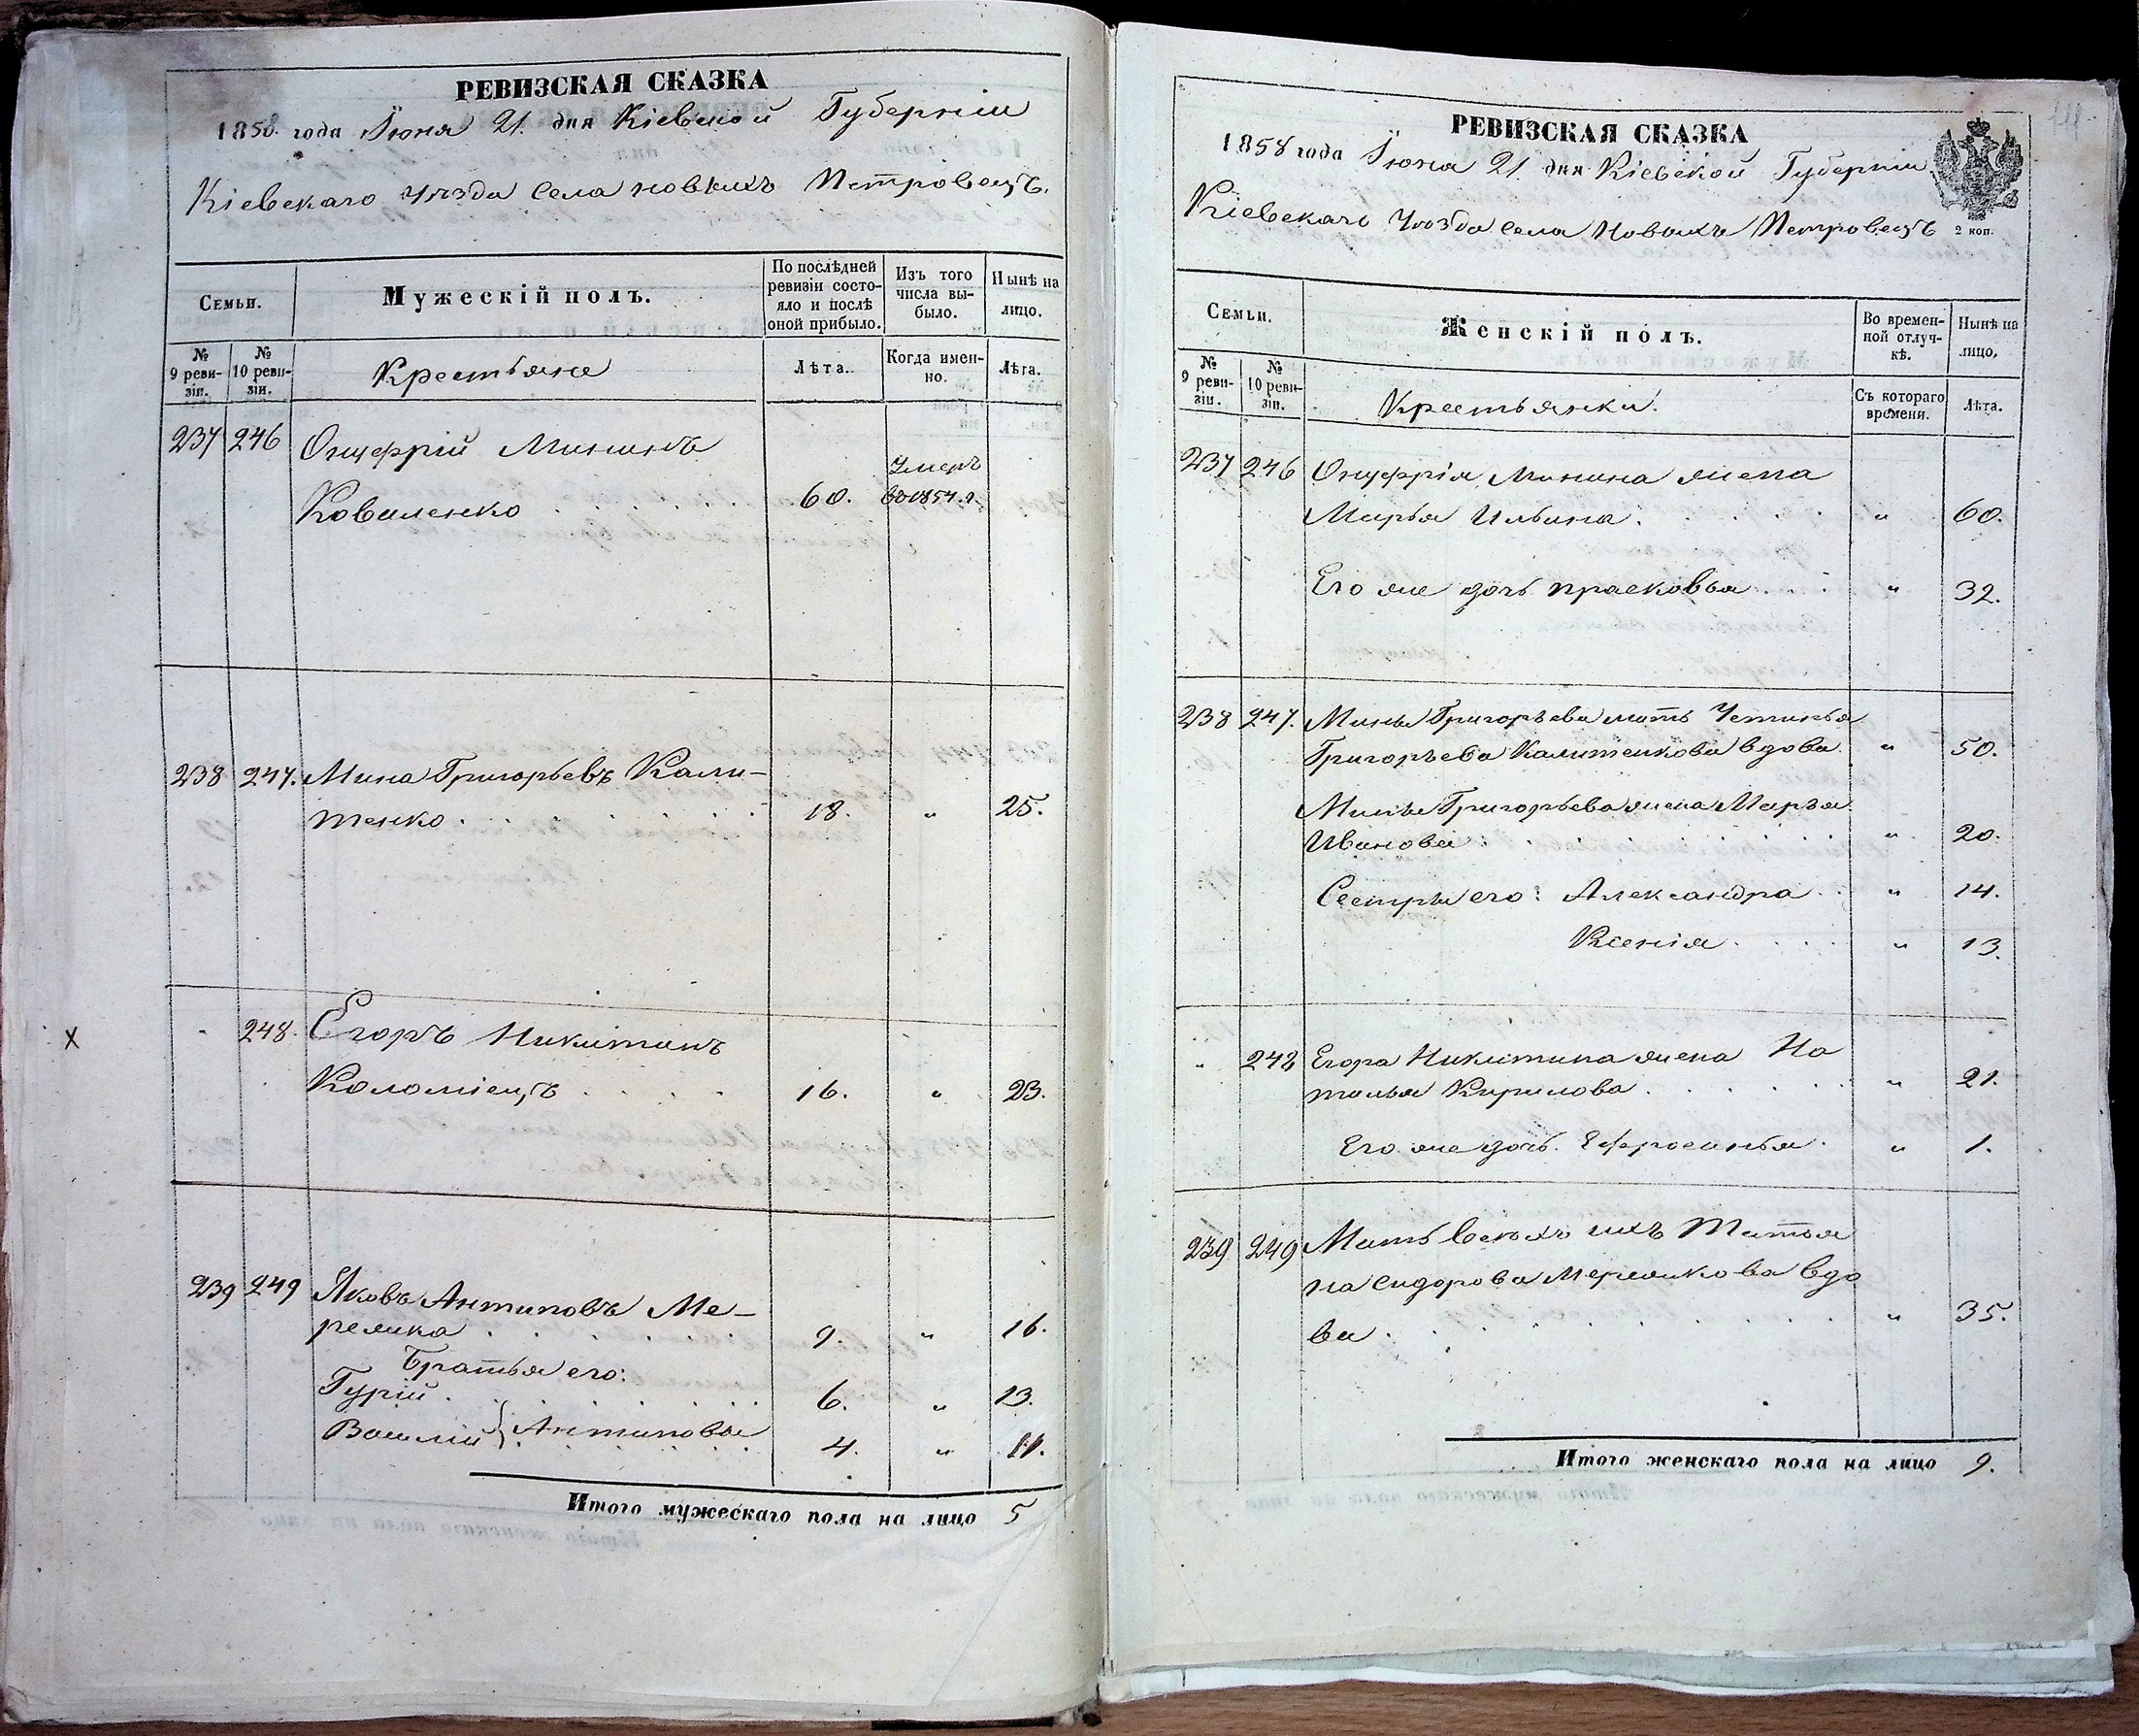 РЕВИЗСКАЯ СКАЗКА
1858. года Іюня 21. дня Кіевской Губерніи
Кіевскаго уѣзда села новыхъ Петровецъ.
Семьи.
Мужескій полъ.
По послѣдней ревизіи состояло и послѣ оной прибыло.
Изъ того числа выбыло.
Нынѣ на лицо.
№ 9 ревизіи.
№ 10 ревизіи.
Крестьяне
Лѣта.
Когда именно.
Лѣта.
237 246 Онуфрій Мининъ
Коваленко 60. Умеръ въ 1854.г.
238 247. Мина Григорьевъ Кали-
тенко 18. „ 25.
248. Егоръ Никитинъ
Коломіецъ 16. „ 23.
Х
239 249 Яковъ Антиповъ Ме-
режика 9. „ 16.
Братья его:
Гурій 6. „ 13.
Василій } Антиповы 4. „ 11.
Итого мужескаго пола на лицо 5
РЕВИЗСКАЯ СКАЗКА
1858 года Іюня 21. дня Кіевской Губерніи
Кіевскаго Уѣзда села Новыхъ Петровецъ
2 коп.
Семьи.
Женскій полъ.
Во временной отлучкѣ.
Нынѣ на лицо.
№ 9 ревизіи.
№ 10 ревизіи.
Крестьянки.
Съ котораго времени.
Лѣта.
237 246 Онуфрія Минина жена
Марья Ильина. „ 60.
Его же дочь Прасковья „ 32.
238 247. Мины Григорьева мать Устинья
Григорьева Калитенкова вдова. „ 50.
Мины Григорьева жена Марья
Иванова „ 20.
Сестры его: Александра „ 14.
Ксенія „ 13.
„ 248 Егора Никитина жена На
талья Кирилова „ 21.
Его же дочь. Ефросинья „ 1.
239 249 Мать всехъ ихъ Татья
на Сидорова Мережикова вдо
ва „ 35.
Итого женскаго пола на лицо 9.